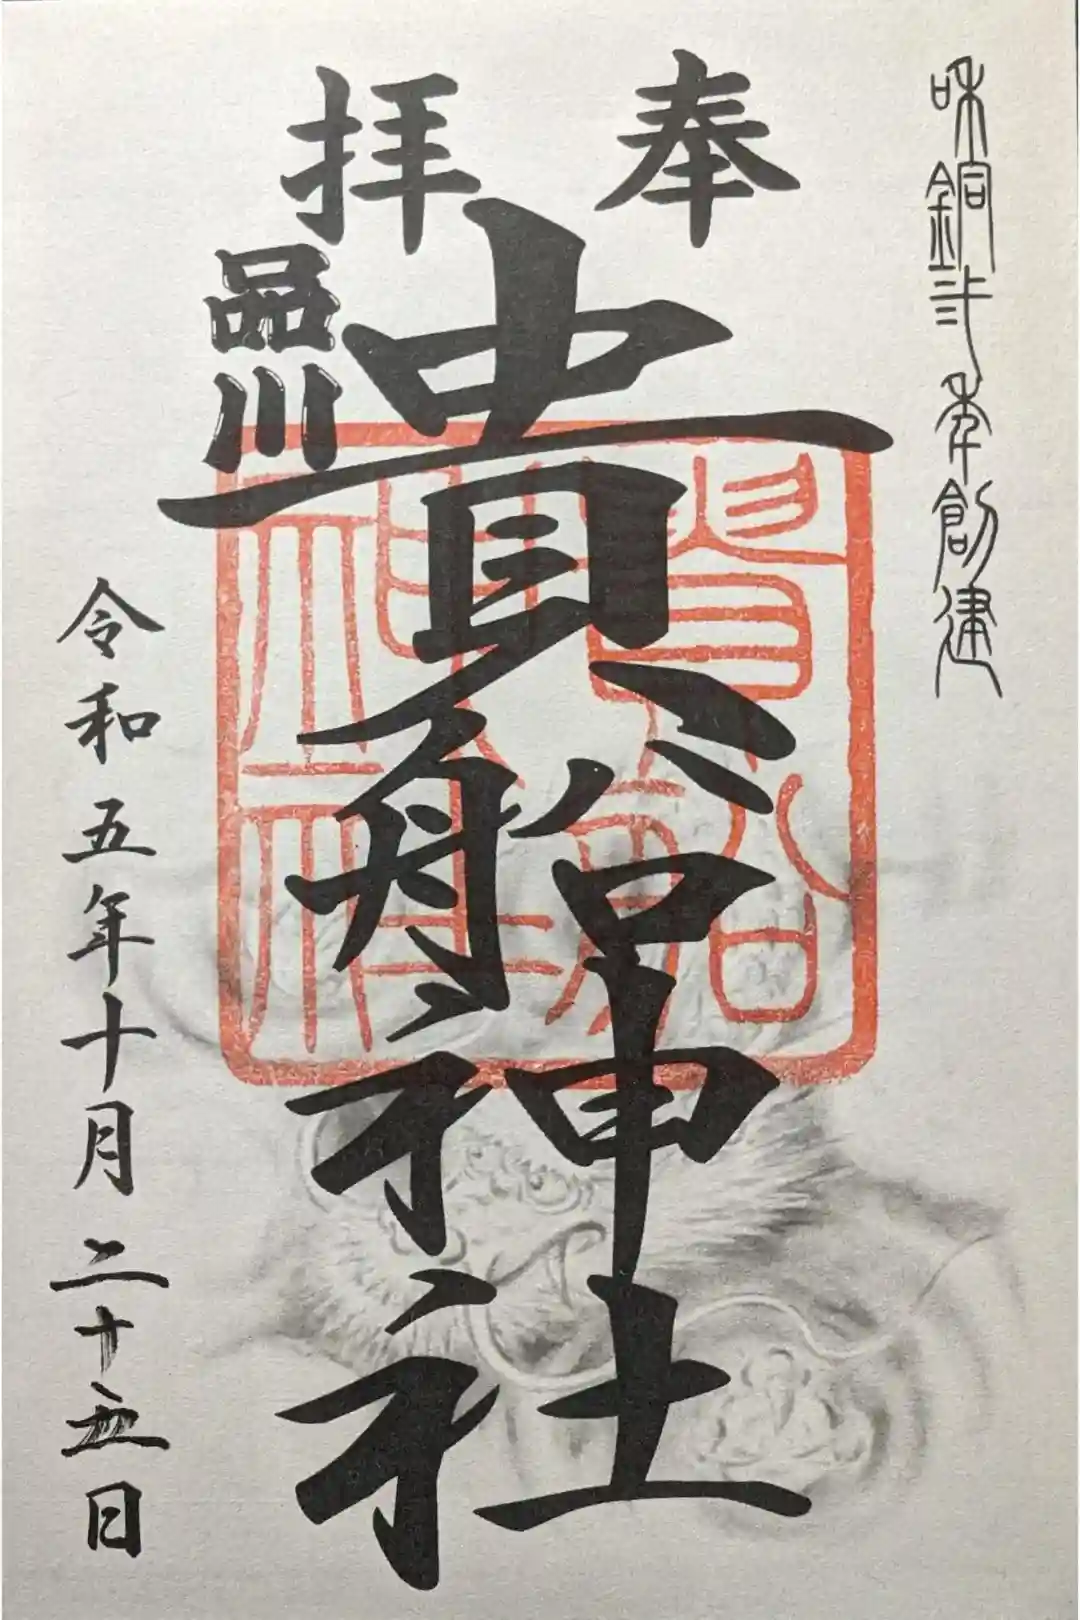 和銅弍年創建
奉拝
貴船神社
品川
貴船
神社
令和五年十月二十五日